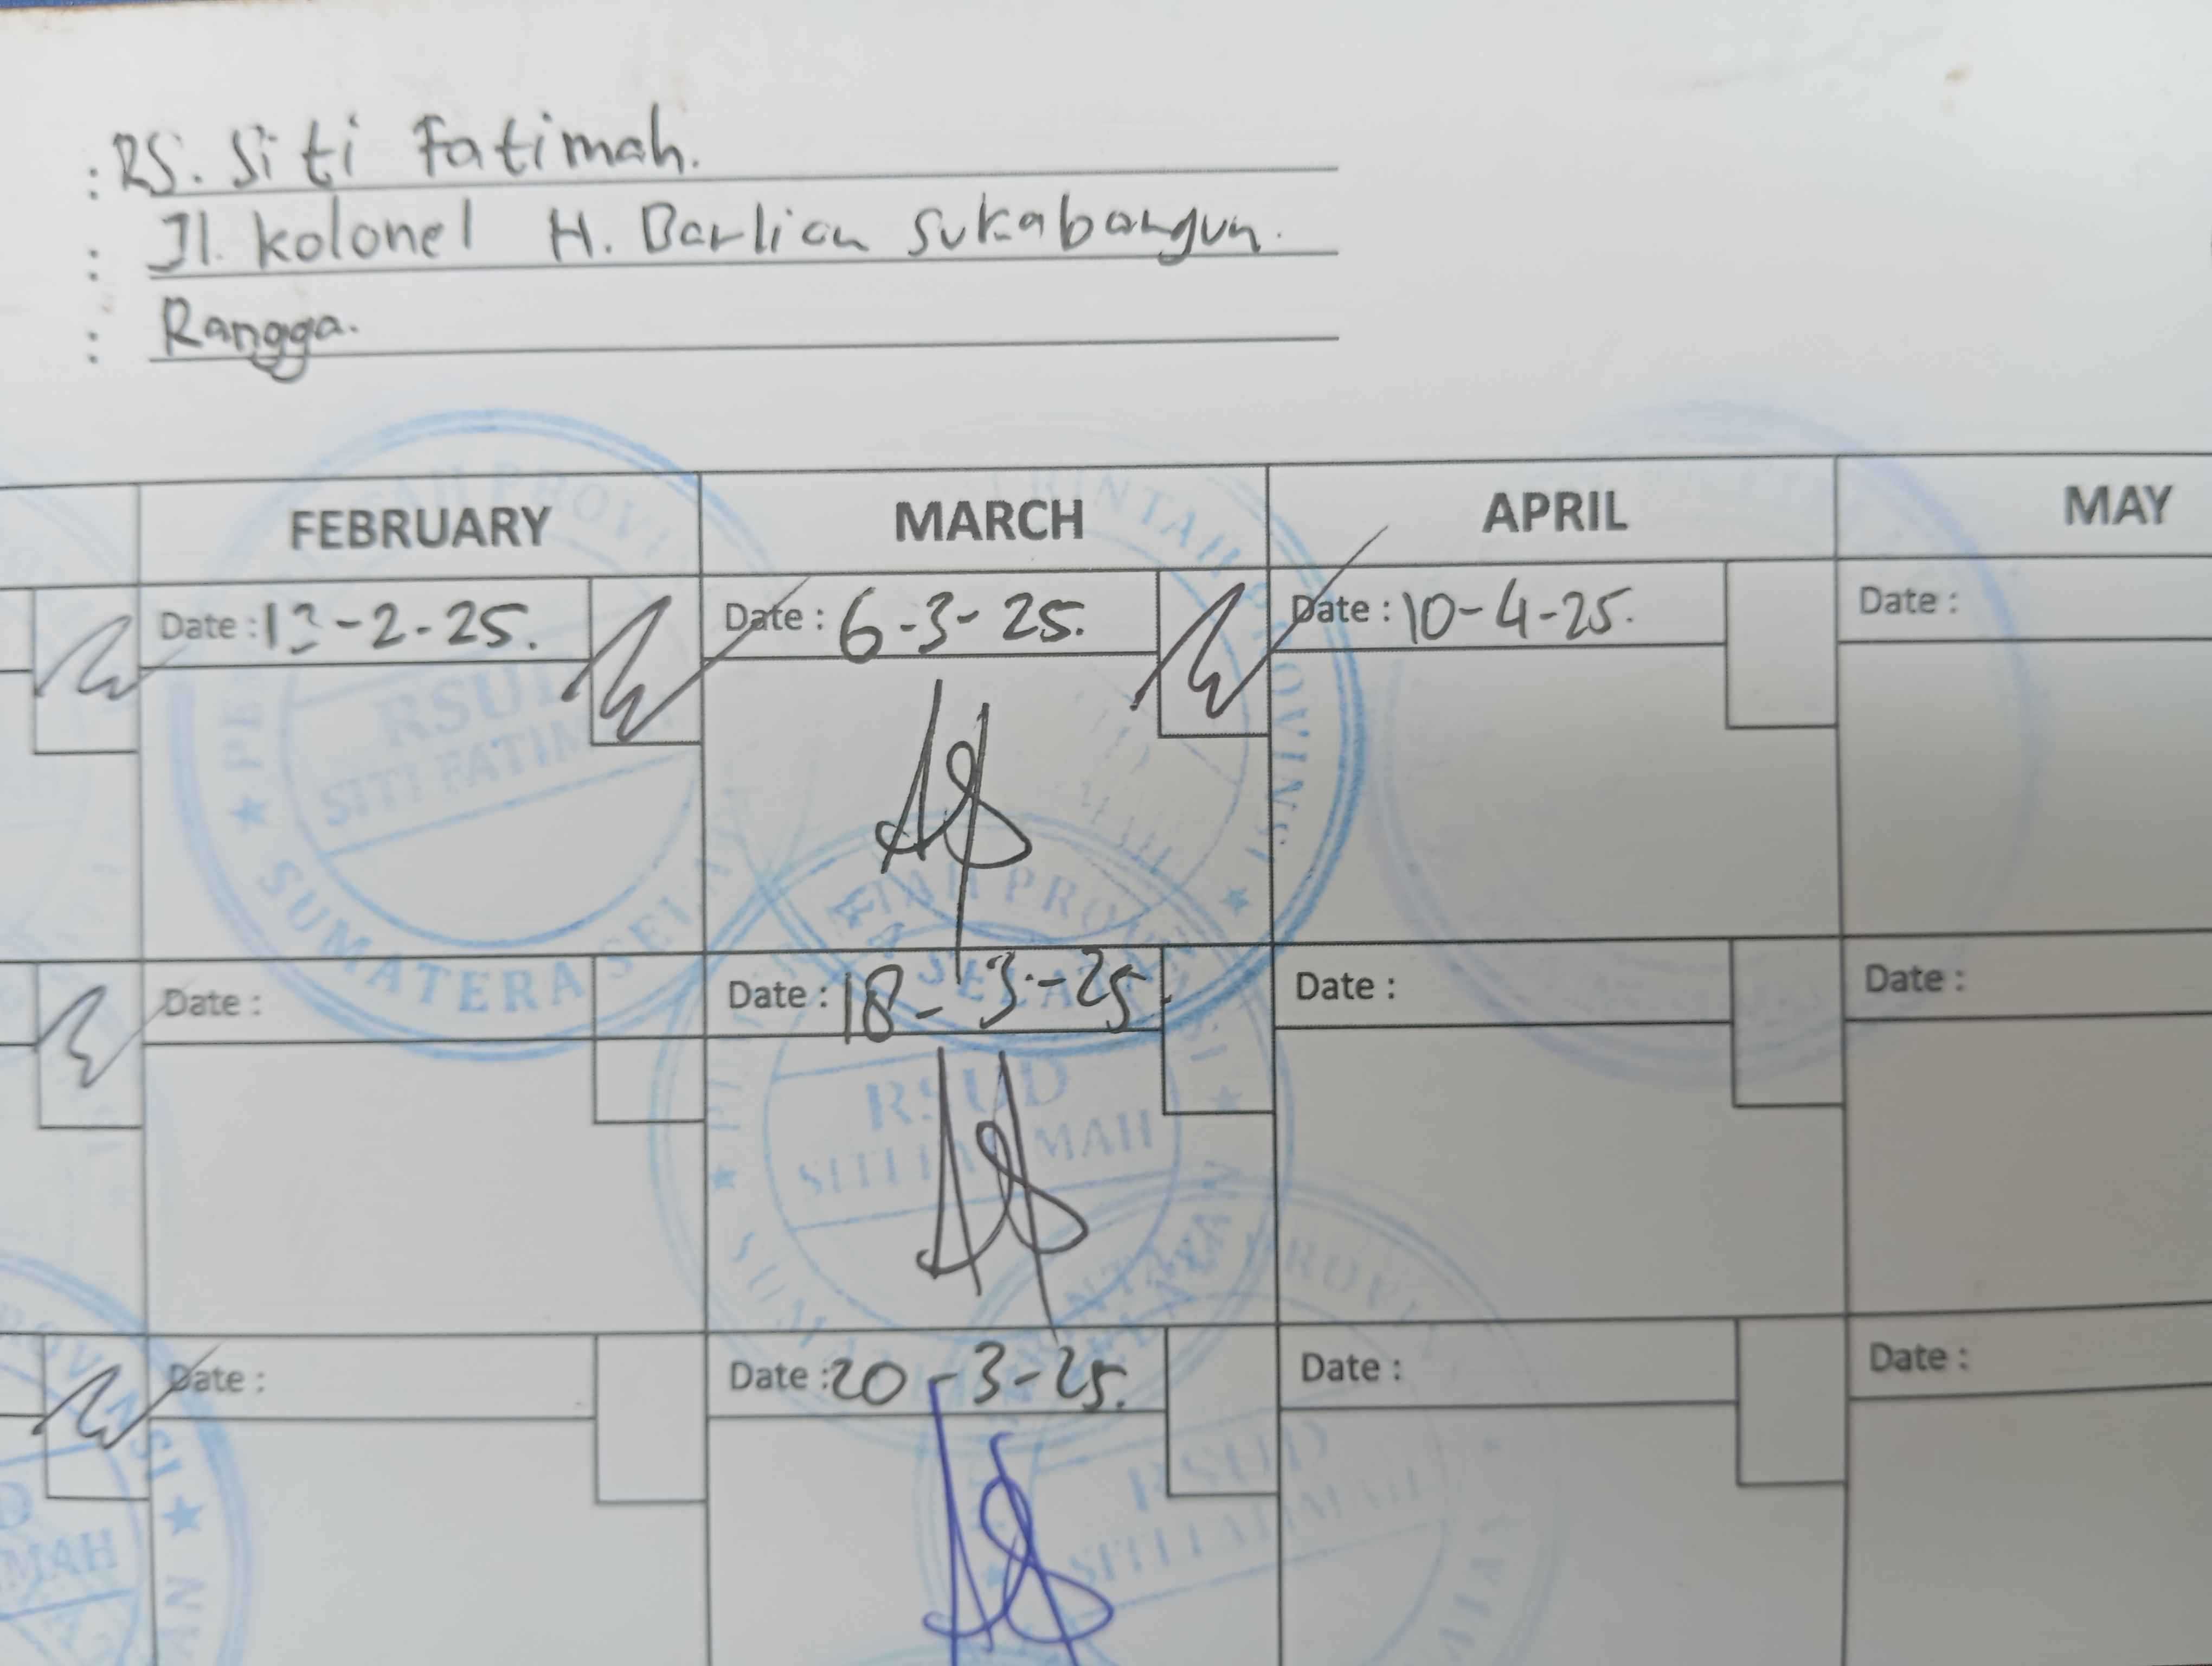 : RS. Siti Fatimah.
: Jl. Kolonel H. Barlian Sukabangun.
: Rangga.
FEBRUARY MARCH APRIL MAY
Date : 13-2-25. Date : 6-3-25. Date : 10-4-25. Date :
RSUD
SITI FATIM
SUMATERA SELATAN
Date : Date : 18-3-25 Date : Date :
RSUD
SITI FATIMAH
Date : Date : 20-3-25. Date : Date :
RSUD
SITI FATIMAH
MAH